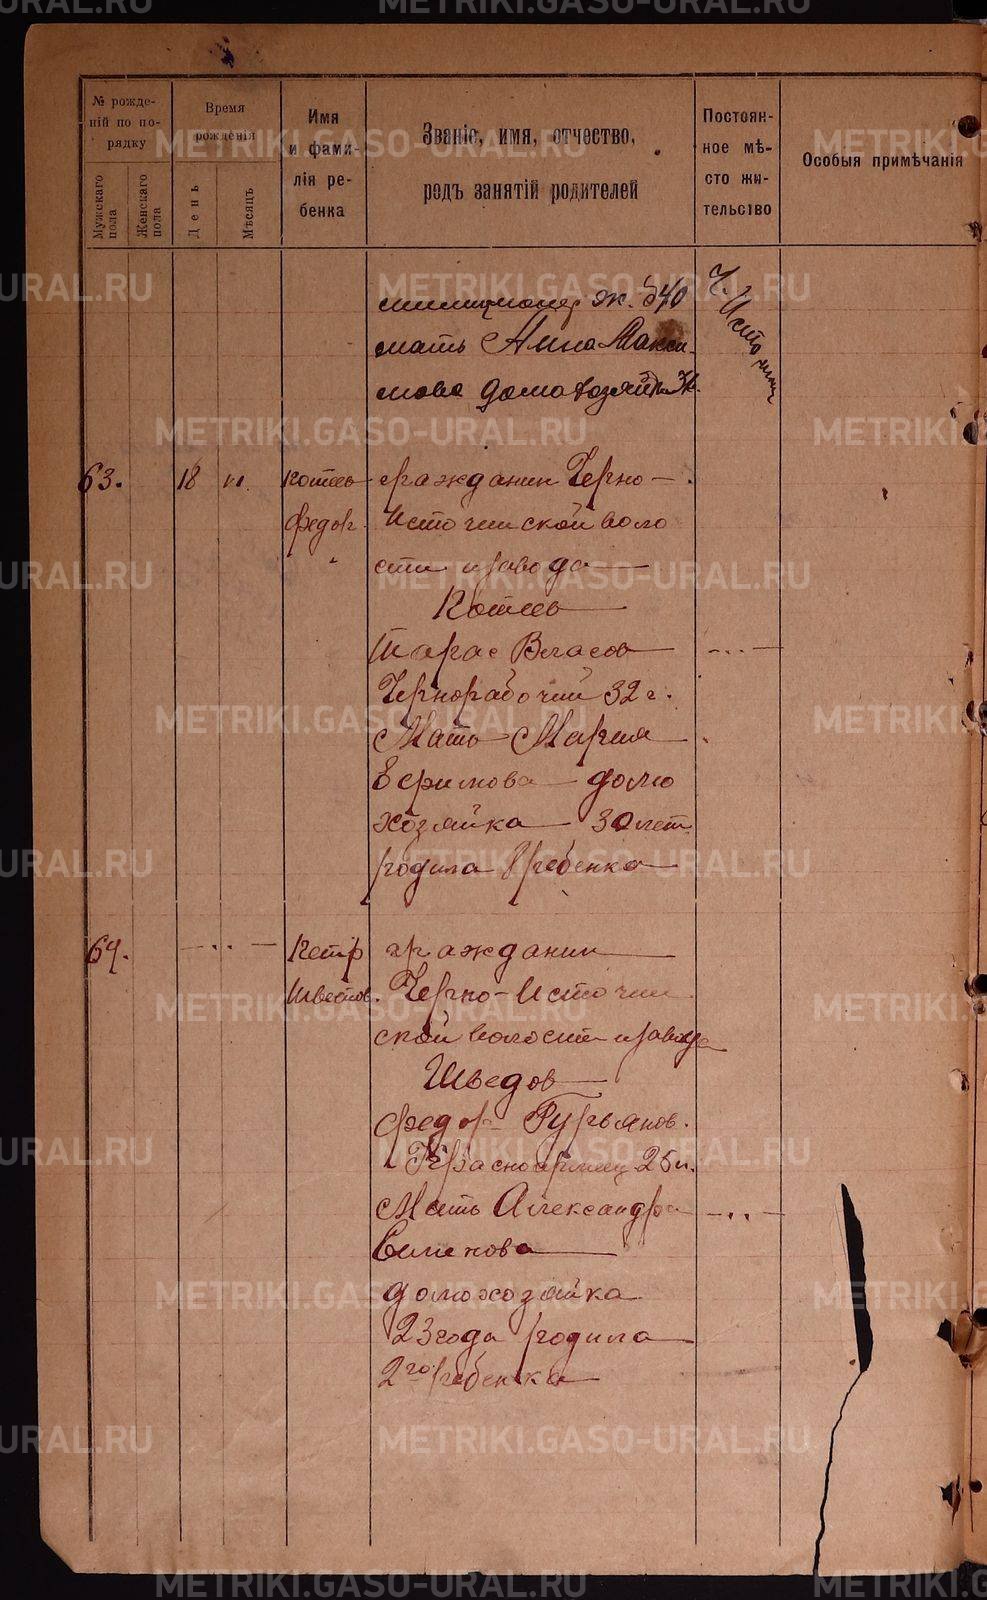 № рожде-
ній по по-
рядку
Мужскаго
пола
Женскаго
пола
Время
рожденія
День
Мѣсяцъ
Имя
и фами-
лія ре-
бенка
Званіе, имя, отчество,
родъ занятій родителей
Постоян-
ное мѣ-
сто жи-
тельство
Особыя примѣчанія
милиционер ж. д 40
мать Анна Макси-
мова домохозяйка
63. 18
Котеев
Федор.
гражданин Черно-
Источинской воло
сти и завода
Котеев
Тарас Власов
Чернорабочий 32 г.
Мать Мария
Ефимова домо
хозяйка 30 лет
родила 8 ребенка
64.
Петр
гражданин
Черно-Источин
ской волости и завода
Шведов
Федор Гурьянов.
Красноармеец 25 л.
Мать Александра
Семенова
домохозяйка
23 года родила
2го ребенка
METRIKI.GASO-URAL.RU